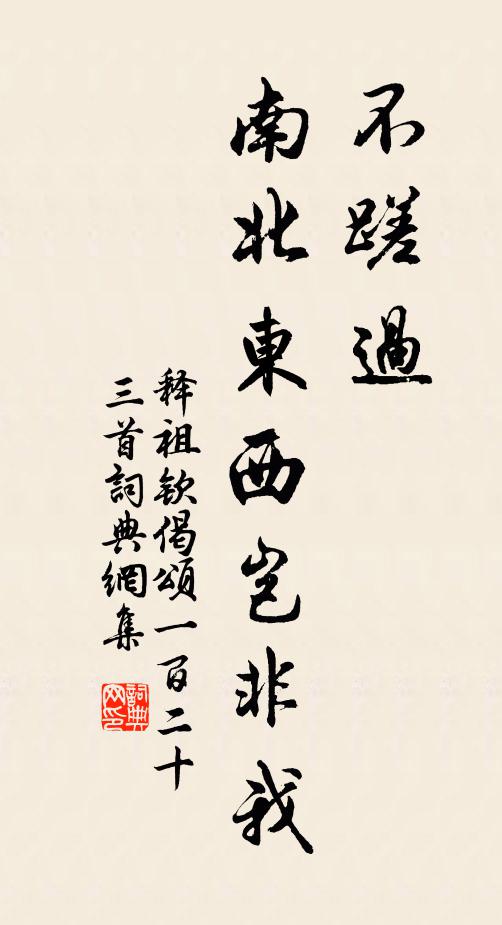 不蹉過
南北東西豈非我
释祖欽偈頌一百二十
三首詞典網集
詞典網印